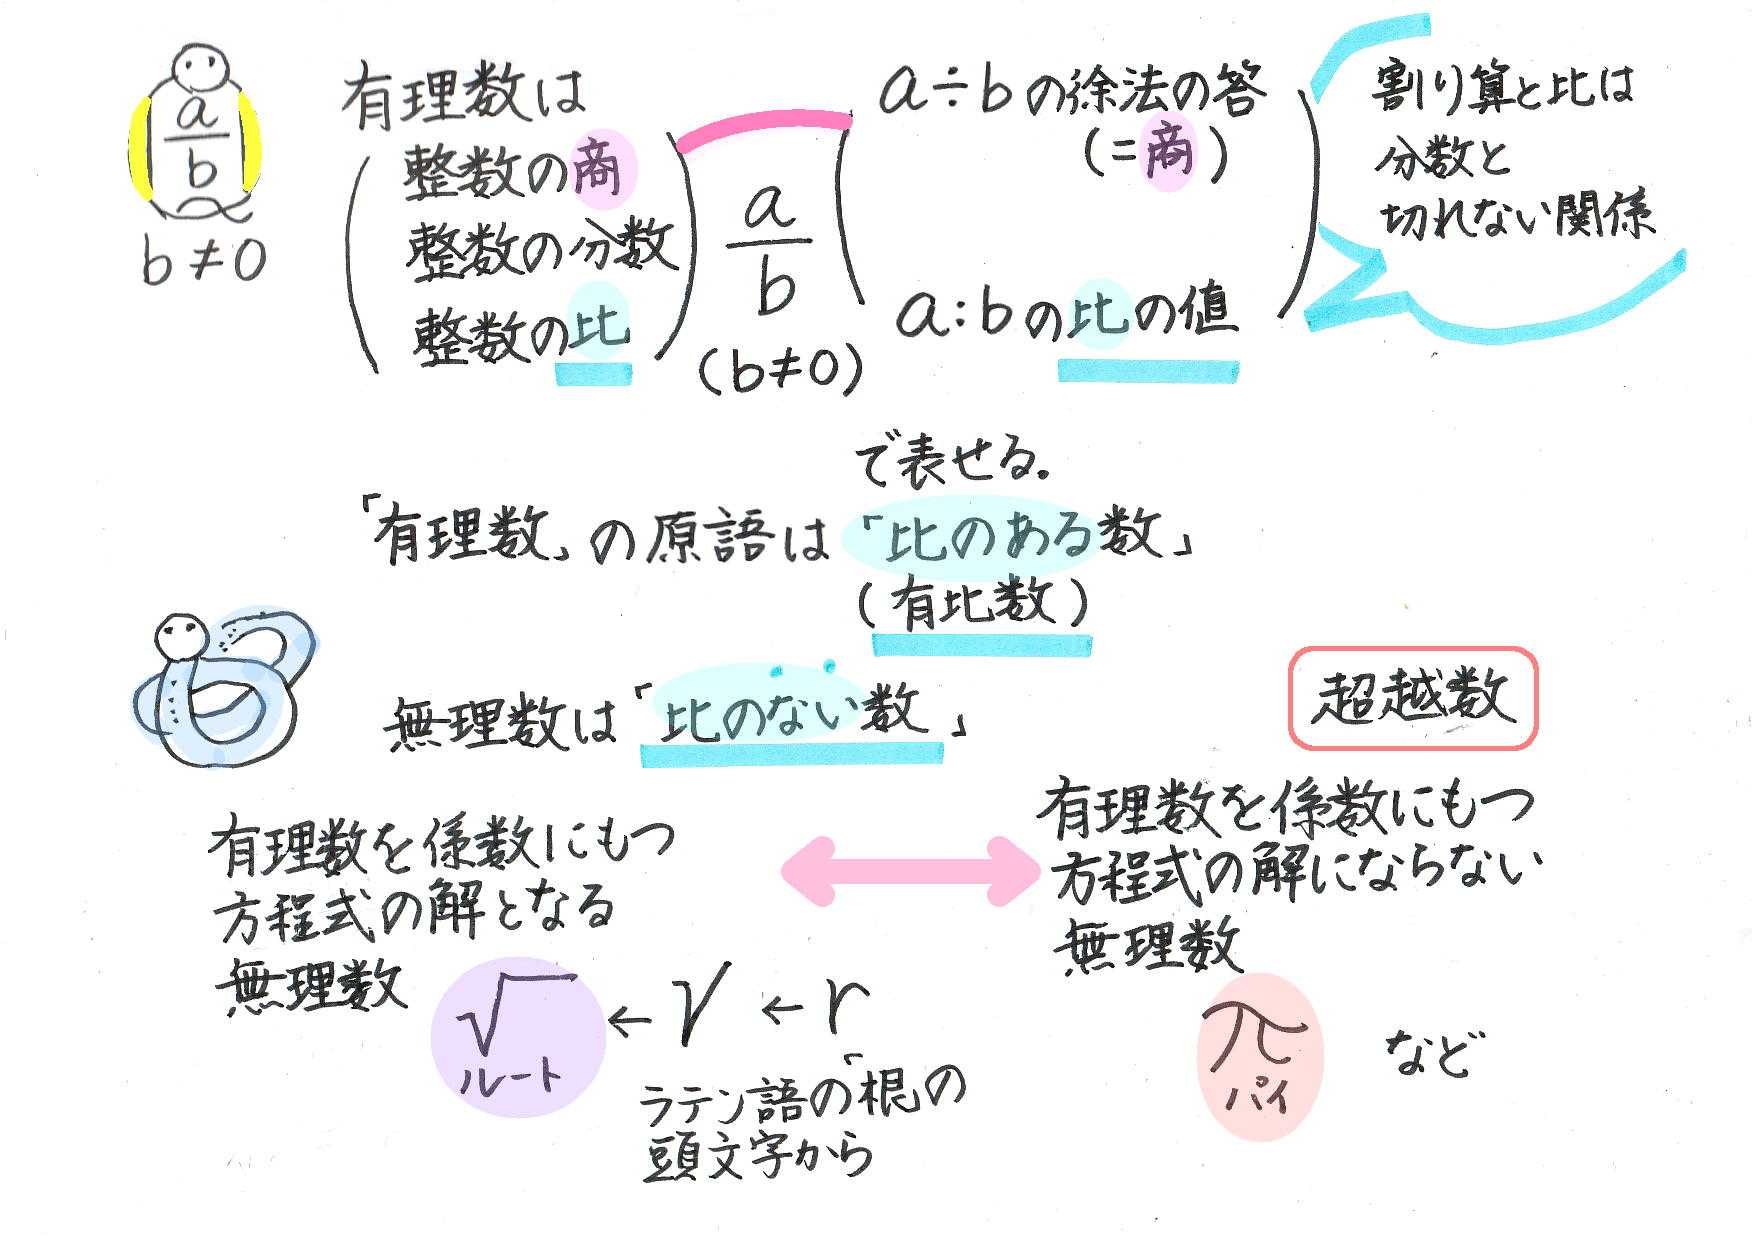 a
b
b≠0
有理数は
整数の商
整数の分数
整数の比
a
b
(b≠0)
a÷bの徐法の答
(=商)
a:bの比の値
割り算と比は
分数と
切れない関係
で表せる。
「有理数」の原語は「比のある数」
(有比数)
無理数は「比のない数」
超越数
有理数を係数にもつ
方程式の解となる
無理数
√ ← γ ← r
ルート
ラテン語の「根」の
頭文字から
有理数を係数にもつ
方程式の解にならない
無理数
π など
パイ